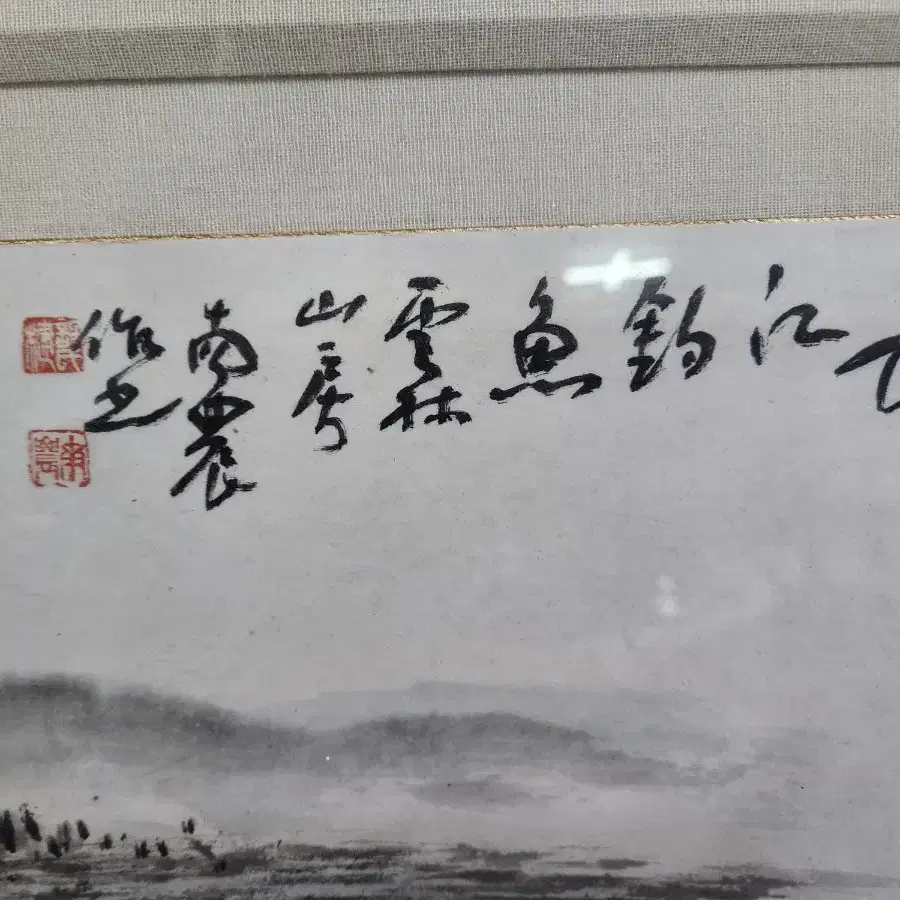 江
釣
魚
雲林
山房
南農
作